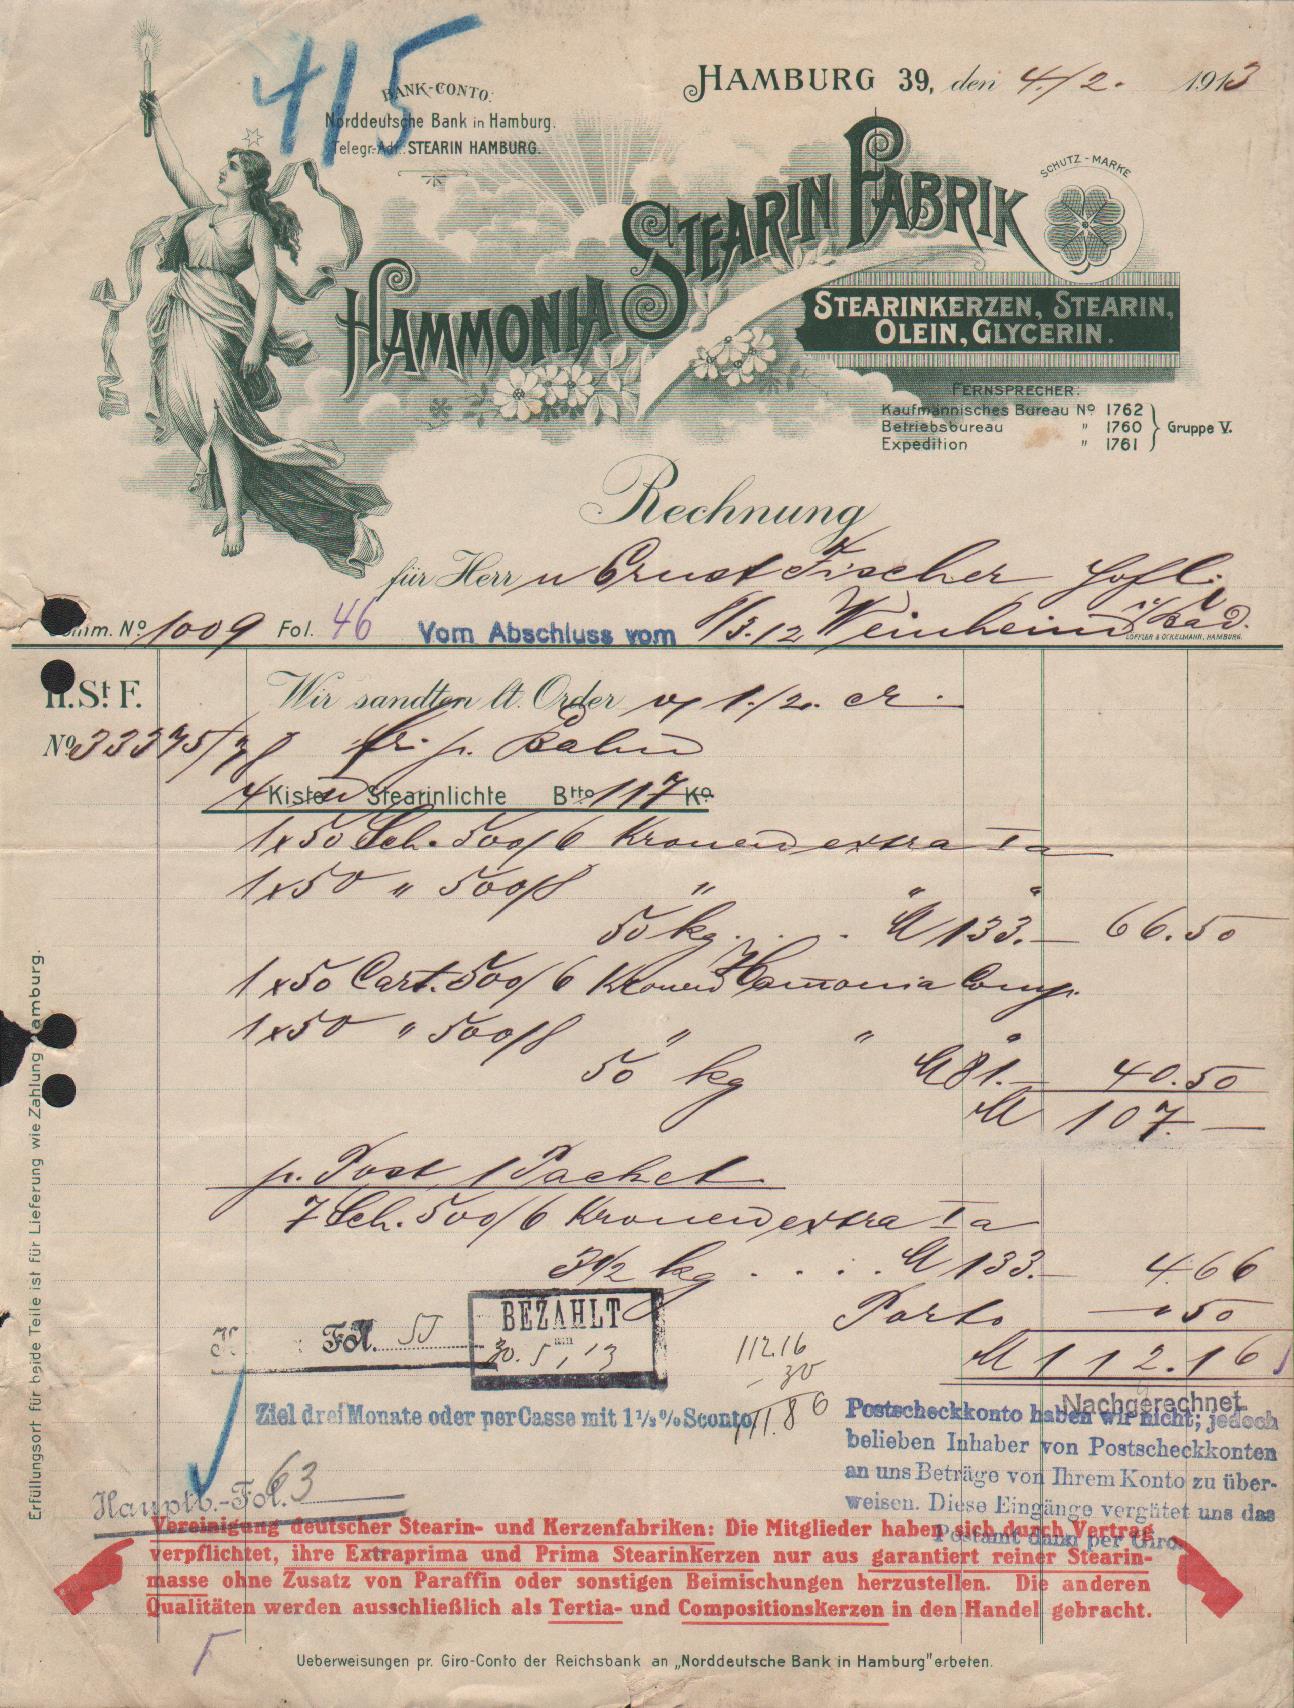 415
BANK-CONTO:
Norddeutsche Bank in Hamburg.
Telegr.-Adr.: STEARIN HAMBURG.
HAMBURG 39, den 4./2. 1913
HAMMONIA STEARIN FABRIK
SCHUTZ-MARKE
STEARINKERZEN, STEARIN,
OLEIN, GLYCERIN.
FERNSPRECHER:
Kaufmännisches Bureau No 1762
Betriebsbureau " 1760
Expedition " 1761
Gruppe V.
Rechnung
für Herrn Ernst Fischer Hofl.
Comm. No 1009 Fol. 46 Vom Abschluss vom 8/3.12 Weinheim i/Bad.
LÖFFLER & OCKELMANN, HAMBURG.
H. St F. Wir sandten lt. Order v 1./2. cr.
No 33375/78 fr. p. Bahn
4 Kisten Stearinlichte Btto 117 Ko
1 x 50 Sch. 500/6 Kronen extra Ia
1 x 50 " 500/8 " " "
50 kg . . . M 133.— 66.50
1 x 50 Cart. 500/6 Kronen Hammonia Comp.
1 x 50 " 500/8 " " "
50 kg M 81.— 40.50
M 107.—
p. Post 1 Packet
7 Sch. 500/6 Kronen extra Ia
3 1/2 kg . . . . M 133.— 4.66
Porto — " 50
M 112.16
Fol. 51
BEZAHLT
am
30. 5. 13
112.16
- 30
111.86
Ziel drei Monate oder per Casse mit 1 1/2 % Sconto
Nachgerechnet
Postscheckkonto haben wir nicht; jedoch
belieben Inhaber von Postscheckkonten
an uns Beträge von Ihrem Konto zu über-
weisen. Diese Eingänge vergütet uns das
Postamt dann per Giro.
Hauptb.-Fol. 63
Vereinigung deutscher Stearin- und Kerzenfabriken: Die Mitglieder haben sich durch Vertrag
verpflichtet, ihre Extraprima und Prima Stearinkerzen nur aus garantiert reiner Stearin-
masse ohne Zusatz von Paraffin oder sonstigen Beimischungen herzustellen. Die anderen
Qualitäten werden ausschließlich als Tertia- und Compositionskerzen in den Handel gebracht.
Ueberweisungen pr. Giro-Conto der Reichsbank an „Norddeutsche Bank in Hamburg" erbeten.
Erfüllungsort für beide Teile ist für Lieferung wie Zahlung Hamburg.